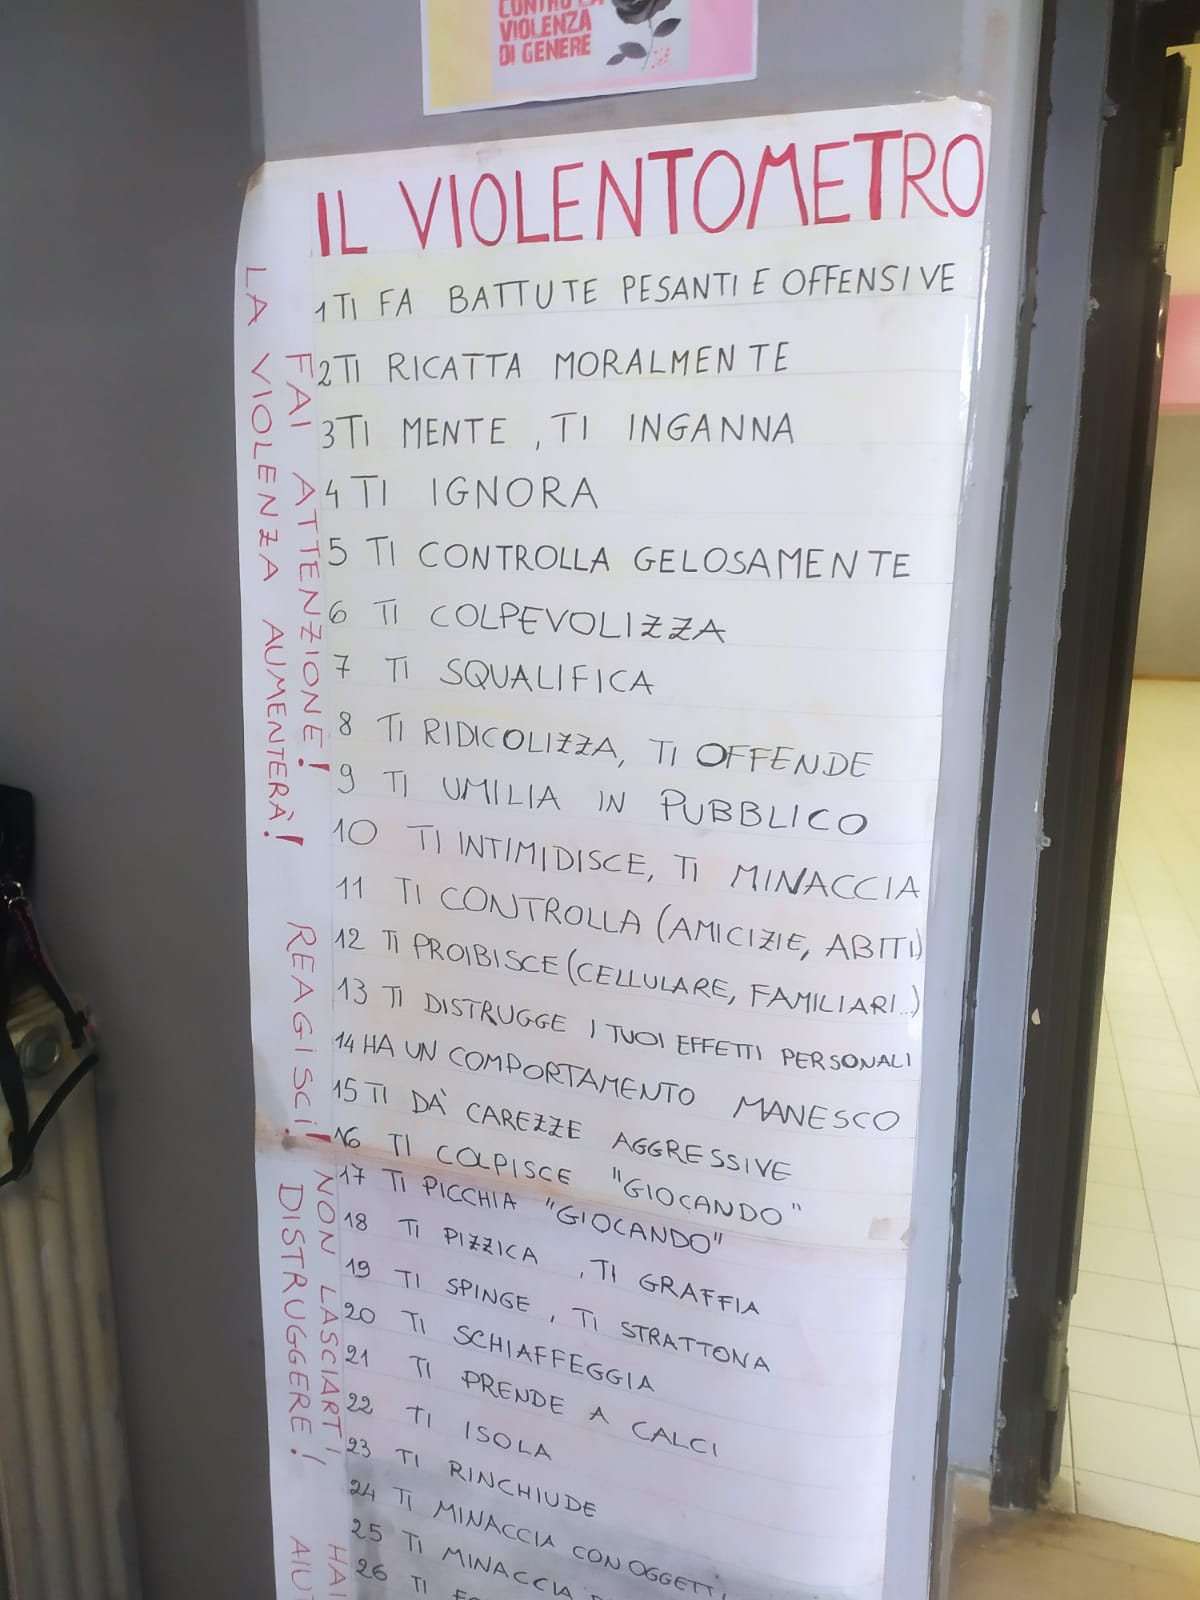 VIOLENZA
DI GENERE
IL VIOLENTOMETRO
1 TI FA BATTUTE PESANTI E OFFENSIVE
2 TI RICATTA MORALMENTE
3 TI MENTE, TI INGANNA
4 TI IGNORA
5 TI CONTROLLA GELOSAMENTE
6 TI COLPEVOLIZZA
7 TI SQUALIFICA
8 TI RIDICOLIZZA, TI OFFENDE
9 TI UMILIA IN PUBBLICO
10 TI INTIMIDISCE, TI MINACCIA
11 TI CONTROLLA (AMICIZIE, ABITI)
12 TI PROIBISCE (CELLULARE, FAMILIARI...)
13 TI DISTRUGGE I TUOI EFFETTI PERSONALI
14 HA UN COMPORTAMENTO MANESCO
15 TI DÀ CAREZZE AGGRESSIVE
16 TI COLPISCE "GIOCANDO"
17 TI PICCHIA "GIOCANDO"
18 TI PIZZICA, TI GRAFFIA
19 TI SPINGE, TI STRATTONA
20 TI SCHIAFFEGGIA
21 TI PRENDE A CALCI
22 TI ISOLA
23 TI RINCHIUDE
24 TI MINACCIA CON OGGETTI
25 TI MINACCIA
26 TI
FAI ATTENZIONE!
LA VIOLENZA AUMENTERÀ!
REAGISCI!
NON LASCIARTI
DISTRUGGERE!